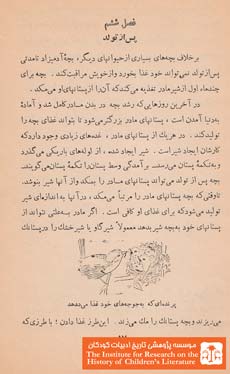 فصل ششم
پس‌از تولد
برخلاف بچه‌های بسیاری از حیوانهای دیگر، بچهٔ آدمیزاد تا مدتی
پس‌از تولد نمی‌تواند خود غذا بخورد و از خویش مراقبت کند. بچه برای
چند ماه اول از شیر مادر تغذیه می‌کند که آن را از پستانهای او می‌مکد.
در آخرین روزهایی که رشد بچه در بدن مادر کامل شد و آمادهٔ
به‌دنیا آمدن است، پستانهای مادر بزرگتر می‌شود تا بتواند غذای بچه را
تولید کند. در هر یک از پستانهای مادر، غده‌های زیادی وجود دارد که
کارشان ایجاد شیر است. شیر ایجاد شده، از لوله‌های باریکی می‌گذرد
و به تکمهٔ پستان می‌رسد. برآمدگی وسط پستان را تکمهٔ پستان می‌گویند.
بچه پس از تولد می‌تواند پستانهای مادر را بمکد و از آنها شیر بنوشد.
تا وقتی که بچه پستانهای مادر را مرتباً می‌مکد، در آنها به اندازه‌ای شیر
تولید می‌شود که برای غذای او کافی است. اگر مادر به‌علتی نتواند از
پستانهای خود به بچه شیر بدهد معمولاً شیر گاو یا شیر خشک را در پستانک
پرنده‌ای که به جوجه‌های خود غذا می‌دهد
می‌ریزند و بچه پستانک را مک می‌زند. این طرز غذا دادن؛ با طرزی که
موسسه پژوهشی تاریخ ادبیات کودکان
The Institute for Research on the
History of Children's Literature